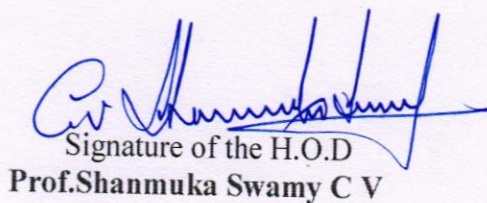 Signature of the H.O.D
Prof.Shanmuka Swamy C V